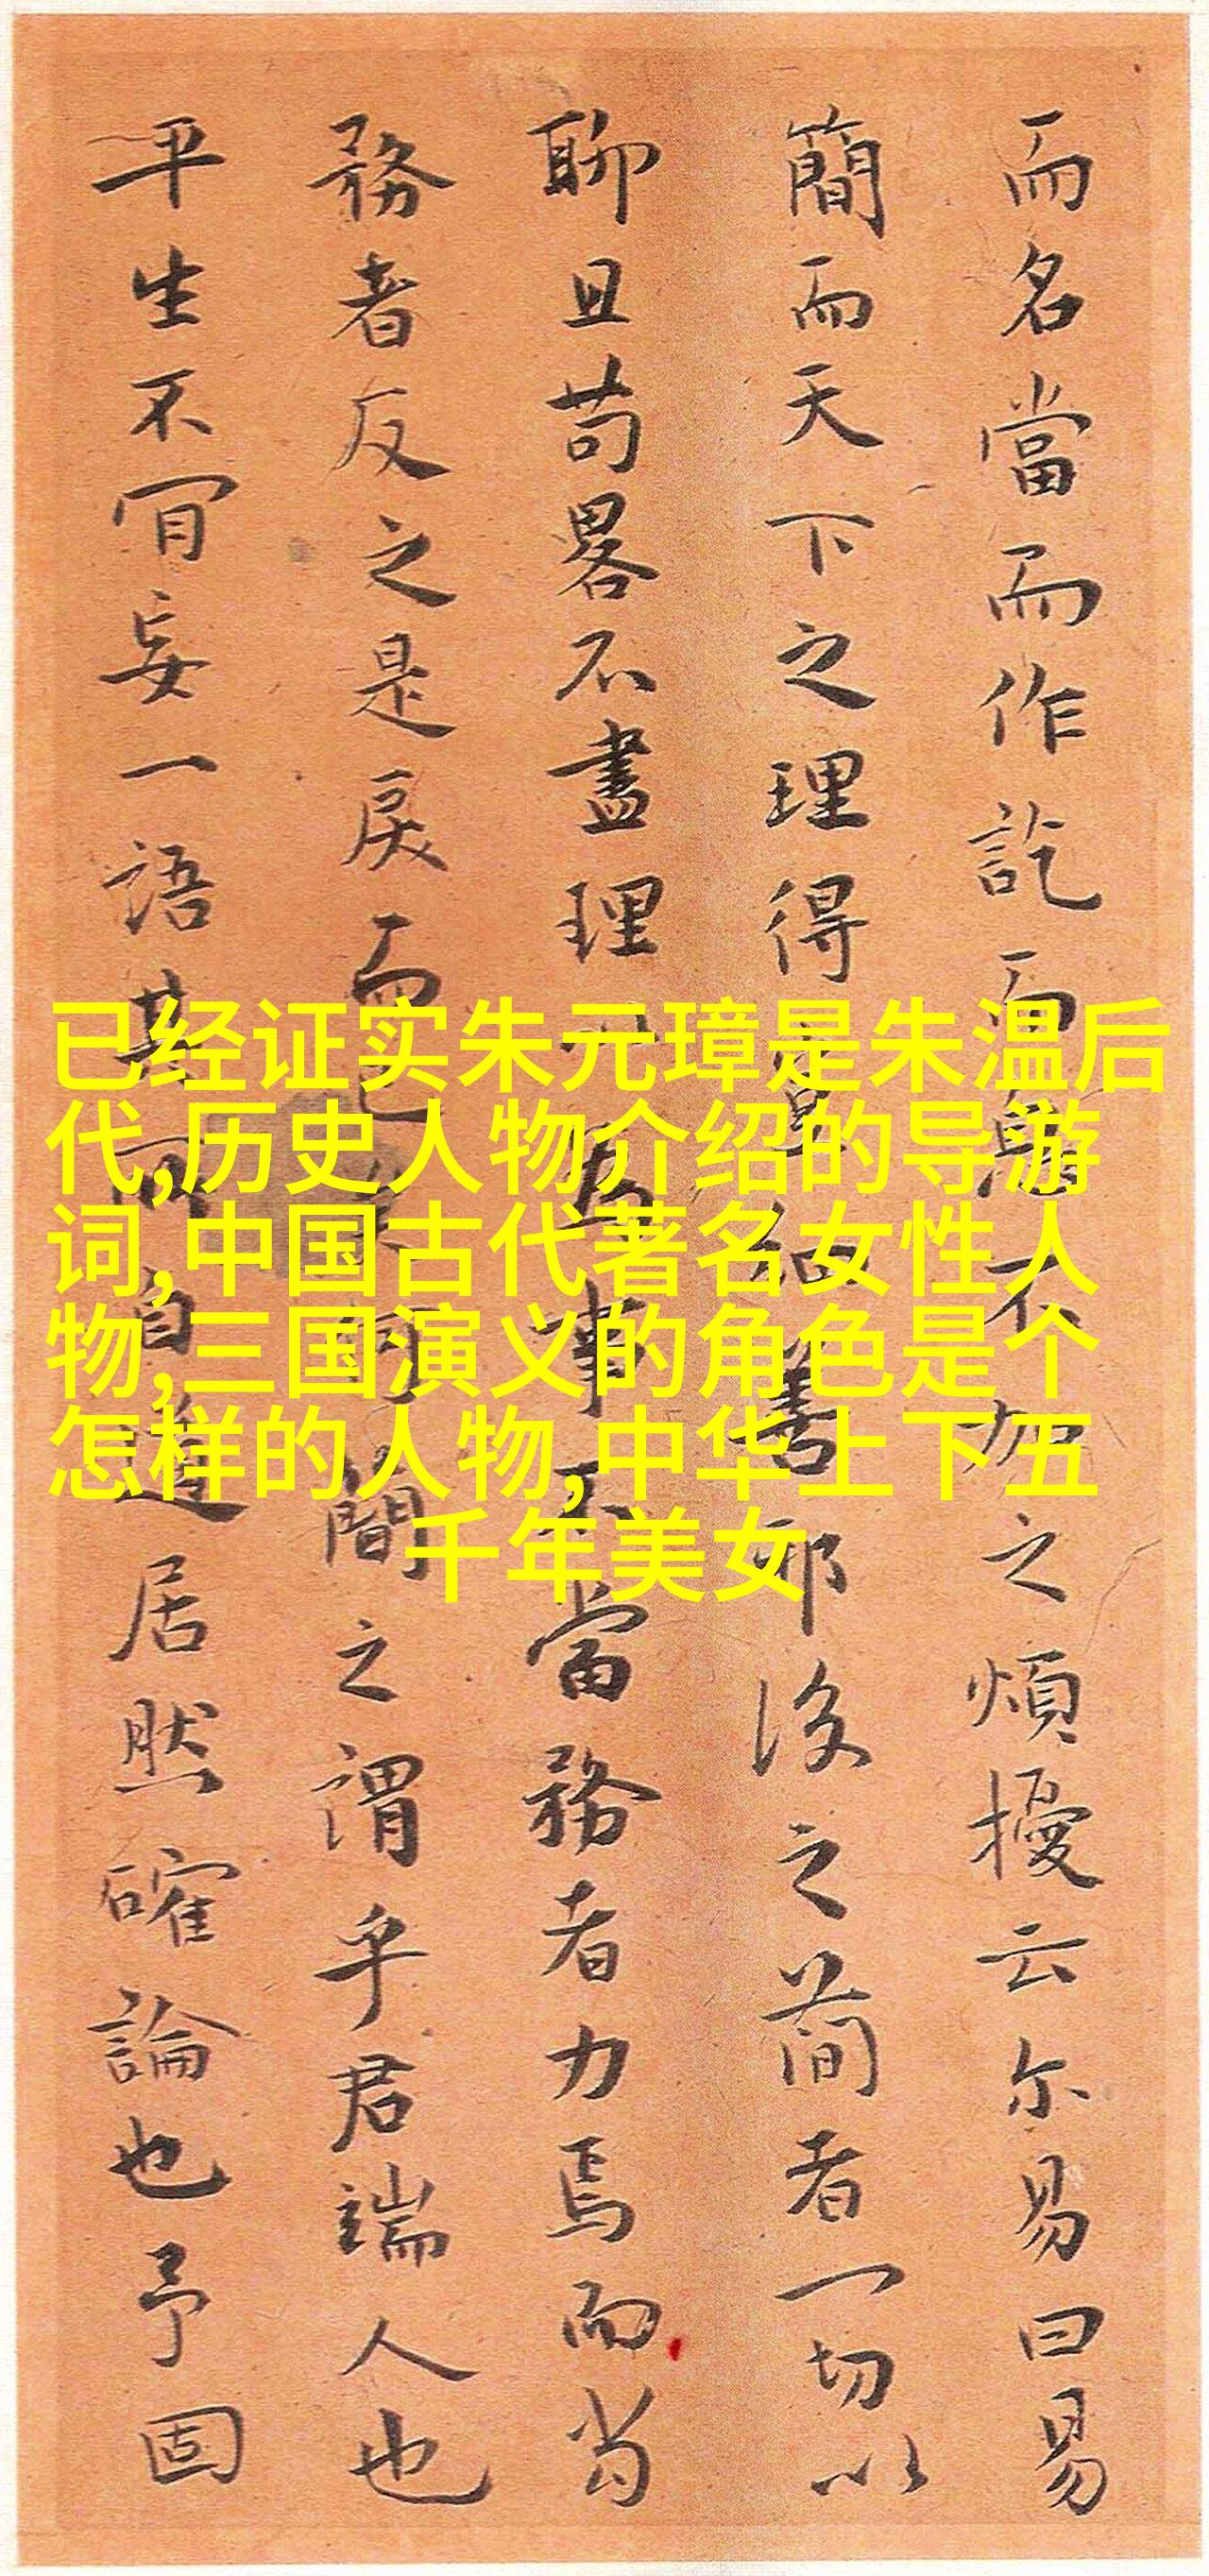 而名當而作訖而不加之煩擾云尔易曰易
簡而天下之理得善邪後之簡者一切以
聊且苟畧不盡理為事不當務者力焉而當
務者反之是戾而已矣何簡之謂乎君端人也
平生不肎妄一語其所自道居然確論也予固
已经证实朱元璋是朱温后
代,历史人物介绍的导游
词,中国古代著名女性人
物,三国演义的角色是个
怎样的人物,中华上下五
千年美女